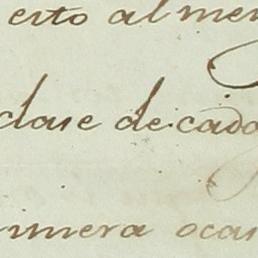 esto al men
clase de cada
rimera ocas